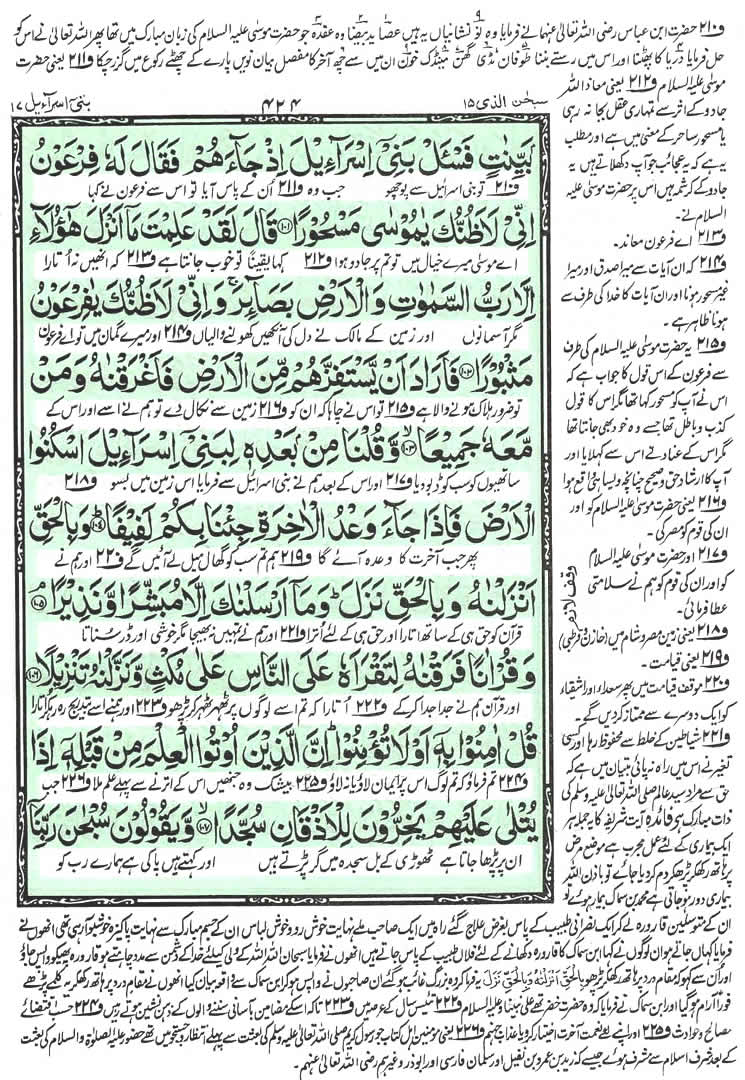 و۲۱۰ حضرت ابن عباس رضی اللہ تعالیٰ عنہما نے فرمایا وہ نو نشانیاں یہ ہیں عصا ید بیضا وہ عقدہ جو حضرت موسیٰ علیہ السلام کی زبان مبارک میں تھا پھر اللہ تعالیٰ نے اس کو
حل فرمایا دریا کا پھٹنا اور اس میں رستے بننا طوفان ٹڈی گھن مینڈک خون ان میں سے چھ آخر کا مفصل بیان نویں پارے کے چھٹے رکوع میں گزر چکا و۲۱۱ یعنی حضرت
موسیٰ علیہ السلام و۲۱۲ یعنی معاذ اللہ
جادو کے اثر سے تمہاری عقل بجا نہ رہی
یا مسحور ساحر کے معنی میں ہے اور مطلب
یہ ہے کہ یہ عجائب جو آپ دکھلاتے ہیں یہ
جادو کے کرشمہ ہیں اس پر حضرت موسیٰ علیہ
السلام نے۔
و۲۱۳ اے فرعون معاند۔
و۲۱۴ کہ ان آیات سے میرا صدق اور میرا
غیر مسحور ہونا اور ان آیات کا خدا کی طرف سے
ہونا ظاہر ہے۔
و۲۱۵ یہ حضرت موسیٰ علیہ السلام کی طرف
سے فرعون کے اس قول کا جواب ہے کہ
اس نے آپ کو مسحور کہا تھا مگر اس کا قول
کذب و باطل تھا جسے وہ خود بھی جانتا تھا
مگر اس کے عناد نے اس سے کہلایا اور
آپ کا ارشاد حق و صحیح چنانچہ ویسا ہی واقع ہوا
و۲۱۶ یعنی حضرت موسیٰ علیہ السلام کو اور
ان کی قوم کو مصر کی۔
و۲۱۷ اور حضرت موسیٰ علیہ السلام
کو اور ان کی قوم کو ہم نے سلامتی
عطا فرمائی۔
و۲۱۸ یعنی زمین مصر و شام میں (خازن و قرطبی)
و۲۱۹ یعنی قیامت۔
و۲۲۰ موقف قیامت میں پھر سعداء اور اشقیاء
کو ایک دوسرے سے ممتاز کر دیں گے۔
و۲۲۱ شیاطین کے خلط سے محفوظ رہا اور کسی
تغیر نے اس میں راہ نہ پائی تبیان میں ہے کہ
حق سے مراد سید عالم صلی اللہ تعالیٰ علیہ وسلم کی
ذات مبارک ہے فائدہ آیت شریفہ کا یہ جملہ ہر
ایک بیماری کے لئے عمل مجرب ہے موضع مرض
پر ہاتھ رکھ کر پڑھ کر دم کر دیا جائے تو باذن اللہ
بیماری دور ہو جاتی ہے محمد بن سماک بیمار ہوئے تو
وقف لازم
بنی اسراءیل ۱۷
۴۲۴
سبحٰن الذی ۱۵
بَيِّنٰتٍ فَسْـَٔلْ بَنِىْٓ اِسْرَآءِيْلَ اِذْ جَآءَهُمْ فَقَالَ لَهٗ فِرْعَوْنُ
و۲۱۰ تو بنی اسرائیل سے پوچھو جب وہ و۲۱۱ ان کے پاس آیا تو اس سے فرعون نے کہا
اِنِّىْ لَاَظُنُّكَ يٰمُوْسٰى مَسْحُوْرًا ۱۰۱ قَالَ لَقَدْ عَلِمْتَ مَآ اَنْزَلَ هٰٓؤُلَآءِ
اے موسیٰ میرے خیال میں تو تم پر جادو ہوا و۲۱۲ کہا یقیناً تو خوب جانتا ہے و۲۱۳ کہ انھیں نہ اتارا
اِلَّا رَبُّ السَّمٰوٰتِ وَالْاَرْضِ بَصَآئِرَ ۚ وَاِنِّىْ لَاَظُنُّكَ يٰفِرْعَوْنُ
مگر آسمانوں اور زمین کے مالک نے دل کی آنکھیں کھولنے والیاں و۲۱۴ اور میرے گمان میں تو اے فرعون
مَثْبُوْرًا ۱۰۲ فَاَرَادَ اَنْ يَّسْتَفِزَّهُمْ مِّنَ الْاَرْضِ فَاَغْرَقْنٰهُ وَمَنْ
تو ضرور ہلاک ہونے والا ہے و۲۱۵ تو اس نے چاہا کہ ان کو و۲۱۶ زمین سے نکال دے تو ہم نے اسے اور اس کے
مَّعَهٗ جَمِيْعًا ۱۰۳ وَّقُلْنَا مِنْۢ بَعْدِهٖ لِبَنِىْٓ اِسْرَآءِيْلَ اسْكُنُوا
ساتھیوں کو سب کو ڈبو دیا و۲۱۷ اور اس کے بعد ہم نے بنی اسرائیل سے فرمایا اس زمین میں بسو و۲۱۸
الْاَرْضَ فَاِذَا جَآءَ وَعْدُ الْاٰخِرَةِ جِئْنَا بِكُمْ لَفِيْفًا ۱۰۴ وَبِالْحَقِّ
پھر جب آخرت کا وعدہ آئے گا و۲۱۹ ہم تم سب کو گھال میل لے آئیں گے و۲۲۰ اور ہم نے
اَنْزَلْنٰهُ وَبِالْحَقِّ نَزَلَ ؕ وَمَآ اَرْسَلْنٰكَ اِلَّا مُبَشِّرًا وَّنَذِيْرًا ۱۰۵
قرآن کو حق ہی کے ساتھ اتارا اور حق ہی کے لئے اترا و۲۲۱ اور ہم نے تمہیں نہ بھیجا مگر خوشی اور ڈر سناتا
وَقُرْاٰنًا فَرَقْنٰهُ لِتَقْرَاَهٗ عَلَى النَّاسِ عَلٰى مُكْثٍ وَّنَزَّلْنٰهُ تَنْزِيْلًا ۱۰۶
اور قرآن ہم نے جدا جدا کر کے و۲۲۲ اتارا کہ تم اسے لوگوں پر ٹھہر ٹھہر کر پڑھو و۲۲۳ اور ہم نے اسے بتدریج رہ رہ کر اتارا
قُلْ اٰمِنُوْا بِهٖٓ اَوْ لَا تُؤْمِنُوْا ؕ اِنَّ الَّذِيْنَ اُوْتُوا الْعِلْمَ مِنْ قَبْلِهٖٓ اِذَا
و۲۲۴ تم فرماؤ کہ تم لوگ اس پر ایمان لاؤ یا نہ لاؤ و۲۲۵ بیشک وہ جنھیں اس کے اترنے سے پہلے علم ملا و۲۲۶ جب
يُتْلٰى عَلَيْهِمْ يَخِرُّوْنَ لِلْاَذْقَانِ سُجَّدًا ۱۰۷ وَّيَقُوْلُوْنَ سُبْحٰنَ رَبِّنَآ
ان پر پڑھا جاتا ہے ٹھوڑی کے بل سجدہ میں گر پڑتے ہیں اور کہتے ہیں پاکی ہے ہمارے رب کو
ان کے متوسلین قارورہ لے کر ایک نصرانی طبیب کے پاس بغرض علاج گئے راہ میں ایک صاحب ملے نہایت خوش رو و خوش لباس ان کے جسم مبارک سے نہایت پاکیزہ خوشبو آ رہی تھی انھوں نے
فرمایا کہاں جاتے ہو ان لوگوں نے کہا ابن سماک کا قارورہ دکھانے کے لئے فلاں طبیب کے پاس جاتے ہیں انھوں نے فرمایا سبحان اللہ اللہ کے ولی کیلئے خدا کے دشمن سے مدد چاہتے ہو قارورہ پھینکو واپس جاؤ
اور ان سے کہو کہ مقام درد پر ہاتھ رکھ کر پڑھو بِالْحَقِّ اَنْزَلْنٰهُ وَبِالْحَقِّ نَزَلَ یہ فرما کر وہ بزرگ غائب ہو گئے ان صاحبوں نے واپس ہو کر ابن سماک سے واقعہ بیان کیا انھوں نے مقام درد پر ہاتھ رکھ کر یہ کلمے پڑھے
فوراً آرام ہو گیا اور ابن سماک نے فرمایا کہ وہ حضرت خضر تھے علیٰ نبینا و علیہ السلام و۲۲۲ تئیس سال کے عرصہ میں و۲۲۳ تاکہ اس کے مضامین باسانی سننے والوں کے ذہن نشین ہوتے رہیں و۲۲۴ حسب اقتضائے
مصالح و حوادث و۲۲۵ اور اپنے لئے نعمت آخرت اختیار کرو یا عذاب جہنم و۲۲۶ یعنی مومنین اہل کتاب جو رسول کریم صلی اللہ تعالیٰ علیہ وسلم کی بعثت سے پہلے انتظار و جستجو میں تھے حضور علیہ الصلوٰۃ و السلام کی بعثت
کے بعد شرف اسلام سے مشرف ہوئے جیسے کہ زید بن عمرو بن نفیل اور سلمان فارسی اور ابوذر وغیرہم رضی اللہ تعالیٰ عنہم۔